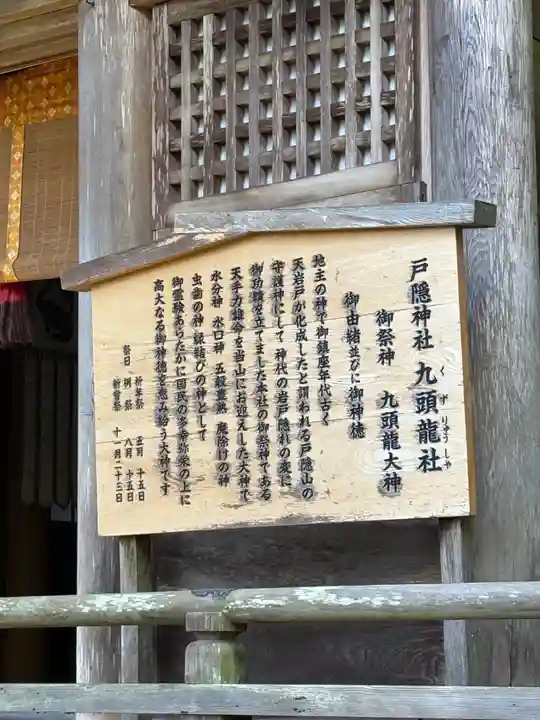 戸隠神社 九頭龍社
くずりゅうしゃ
御祭神 九頭龍大神
御由緒並びに御神徳
地主の神で御鎮座年代古く
天岩戸が化成したと謂われる戸隠山の
守護神にして 神代の岩戸隠れの変に
御功績を立てました本社の御祭神である
天手力雄命を当山にお迎えした大神で
水分神 水口神 五穀豊熟 魔除けの神
虫歯の神 縁結びの神として
御霊験あらたかに国民の多幸弥栄の上に
高大なる御神徳を恵み給う大神です
祭日 祈年祭 五月 十五日
例祭 八月 十五日
新嘗祭 十一月二十三日